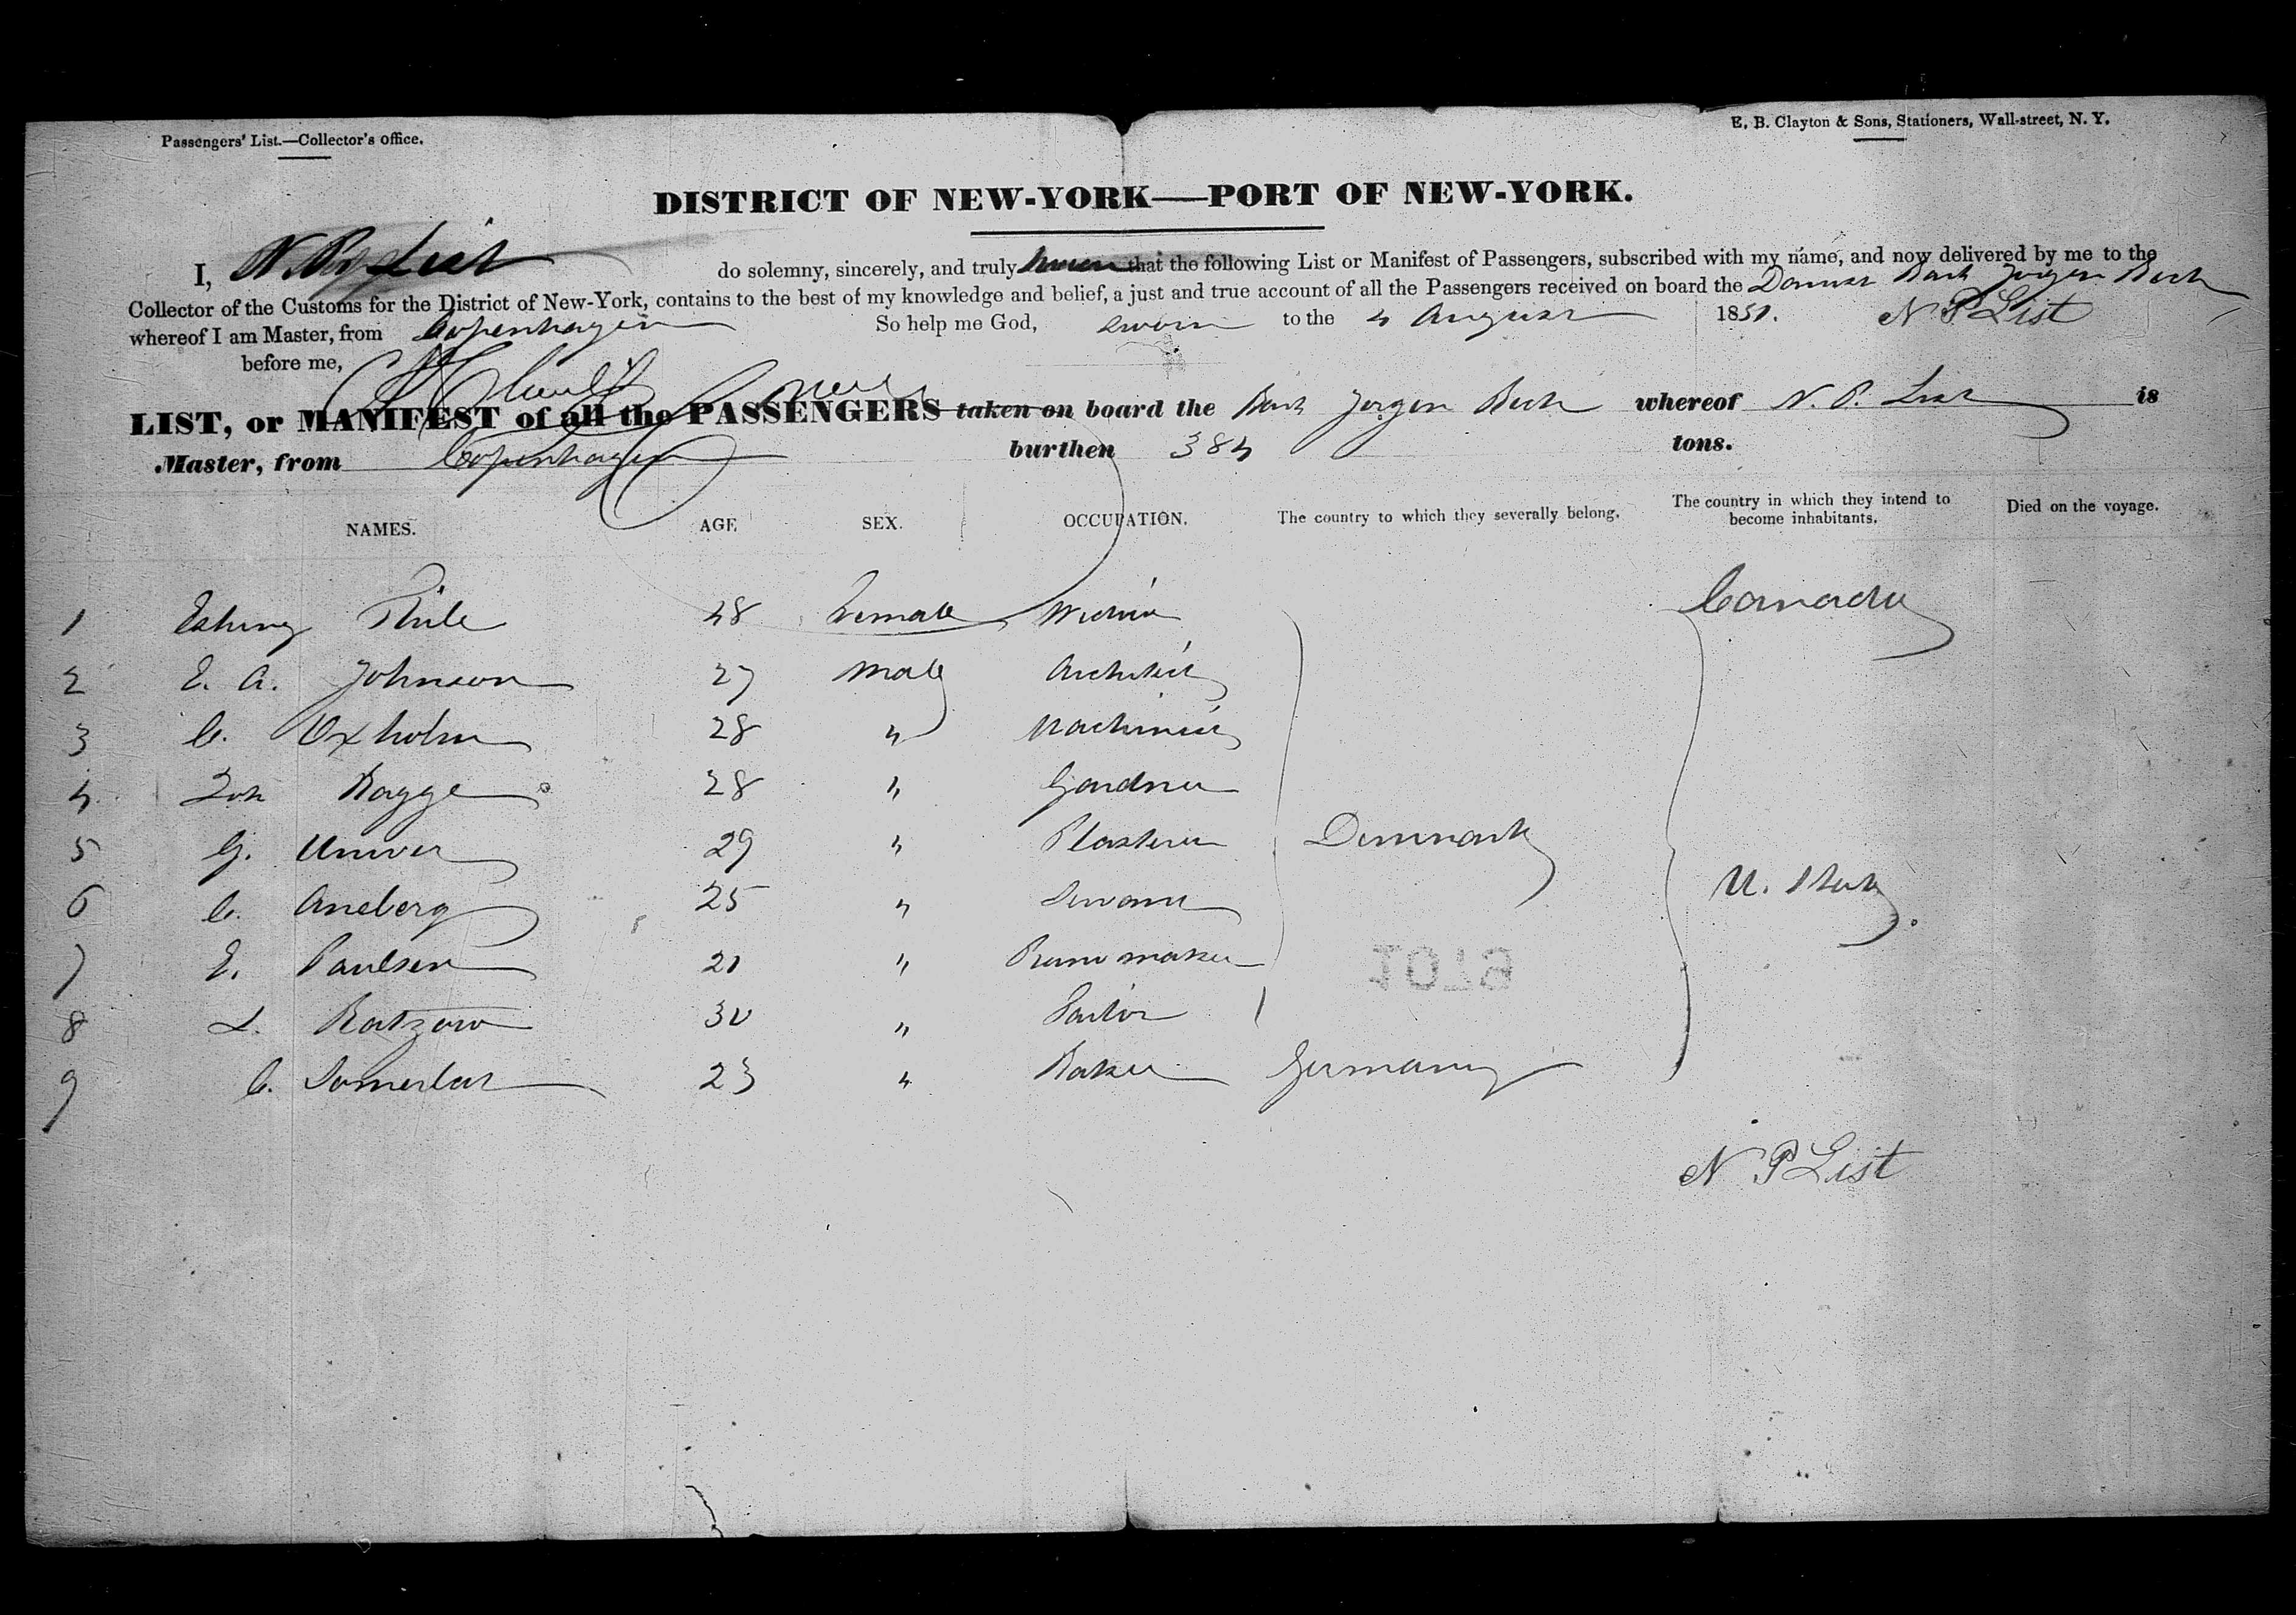 Passengers' List.—Collector's office.
E. B. Clayton & Sons, Stationers, Wall-street, N. Y.
DISTRICT OF NEW-YORK—PORT OF NEW-YORK.
I, N. P. List do solemny, sincerely, and truly swear that the following List or Manifest of Passengers, subscribed with my name, and now delivered by me to the
Collector of the Customs for the District of New-York, contains to the best of my knowledge and belief, a just and true account of all the Passengers received on board the Danish Bark Jorgen
whereof I am Master, from Copenhagen So help me God, sworn to the 4 August 1851. N P List
before me,
LIST, or MANIFEST of all the PASSENGERS taken on board the Bark Jorgen whereof N. P. List is
Master, from Copenhagen burthen 384 tons.
NAMES. AGE SEX. OCCUPATION. The country to which they severally belong. The country in which they intend to become inhabitants. Died on the voyage.
1 Thile 48 Female Canada
2 E. A. Johnson 27 Male Architect
3 C. Oxholm 28 " Machinist
4 Bagge 28 " Gardner
5 G. 29 " Plasterer Denmark
6 C. Aneberg 25 " Servant U. States
7 E. Paulsen 21 " maker
8 L. Ratzow 30 " Tailor
9 C. 23 " Baker Germany
N P List